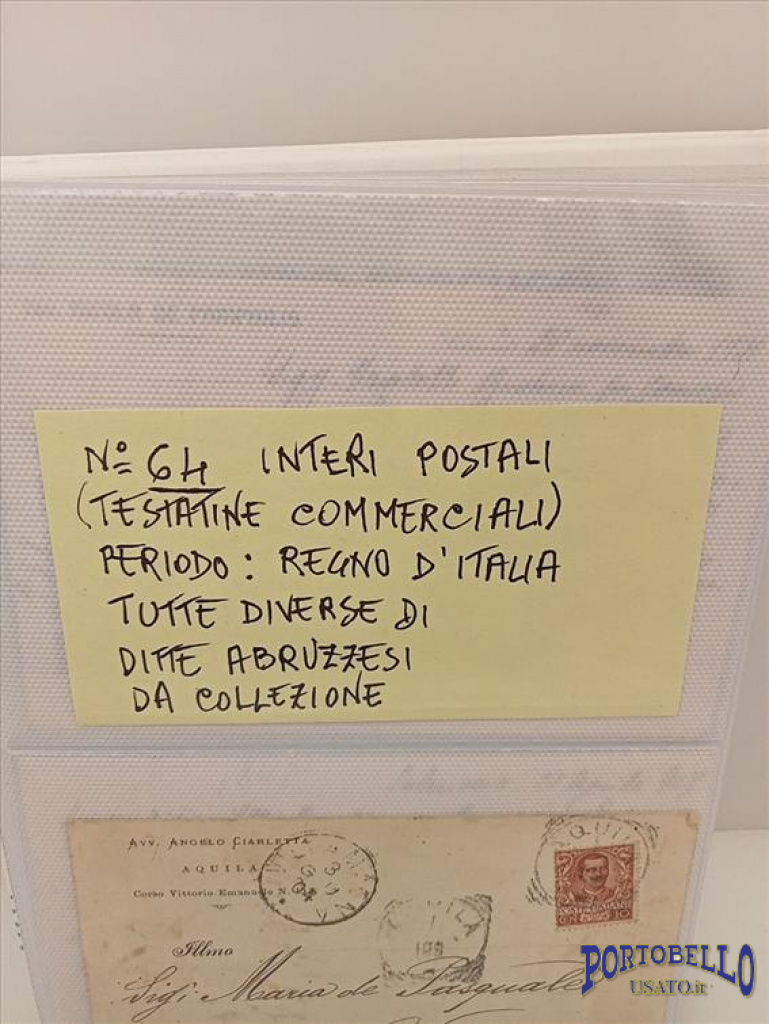 N° 64 INTERI POSTALI
(TESTATINE COMMERCIALI)
PERIODO: REGNO D'ITALIA
TUTTE DIVERSE DI
DITTE ABRUZZESI
DA COLLEZIONE
AVV. ANGELO CIARLETTA
AQUILA
Corso Vittorio Emanuele N.
AQUILA
10
Illmo
Sigr Maria de Pasquale
PORTOBELLO
USATO.it